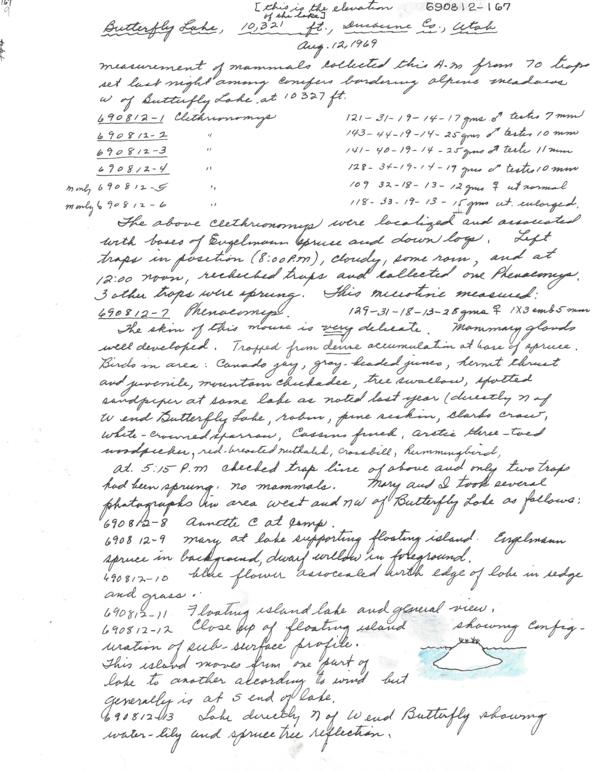 167
[this is the elevation of the lake] 690812-167
Butterfly Lake, 10,321 ft., Duchesne Co., Utah
Aug. 12, 1969
measurement of mammals collected this A.M from 70 traps
set last night among conifers bordering alpine meadows
W of Butterfly Lake at 10327 ft.
690812-1 Clethrionomys 121-31-19-14-17 gms ♂ testes 7 mm
690812-2 " 143-44-19-14-25 gms ♂ testes 10 mm
690812-3 " 141-40-19-14-25 gms ♂ teste 11 mm
690812-4 " 128-34-19-14-19 gms ♂ testes 10 mm
m only 690812-5 " 109 32-18-13-12 gms ♀ ut normal
m only 690812-6 " 118-33-19-13-15 gms ut. enlarged.
The above Clethrionomys were localized and associated
with bases of Engelmann spruce and down logs. Left
traps in position (8:00 P.M), cloudy, some rain, and at
12:00 noon, rechecked traps and collected one Phenacomys.
3 other traps were sprung. This microtine measured:
690812-7 Phenacomys. 129-31-18-13-28 gms ♀ 1X3 emb 5 mm
The skin of this mouse is very delicate. Mammary glands
well developed. Trapped from dense accumulation at base of spruce.
Birds in area: Canada jay, gray-headed junco, hermit thrust
and juvenile, mountain chickadee, tree swallow, spotted
sandpiper at same lake as noted last year (directly N of
W end Butterfly Lake, robin, pine siskin, clarks crow,
white-crowned sparrow, Cassins finch, arctic three-toed
woodpecker, red-breasted nuthatch, crossbill, hummingbird,
at 5:15 P.M checked trap line of above and only two traps
had been sprung. No mammals. Mary and I took several
photographs in area west and NW of Butterfly Lake as follows:
690812-8 Annette C at camp.
690812-9 Mary at lake supporting floating island. Engelmann
spruce in background, dwarf willow in foreground.
690812-10 blue flower associated with edge of lake in sedge
and grass.
690812-11 Floating island lake and general view.
690812-12 Close up of floating island showing config-
uration of sub-surface profile.
This island moves from one part of
lake to another according to wind but
generally is at S end of lake.
690812-13 Lake directly N of W end Butterfly showing
water-lily and spruce tree reflection.